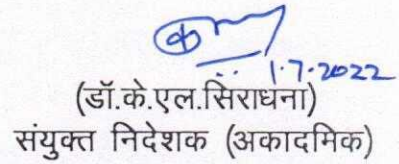 1.7.2022
(डॉ.के.एल.सिराधना)
संयुक्त निदेशक (अकादमिक)